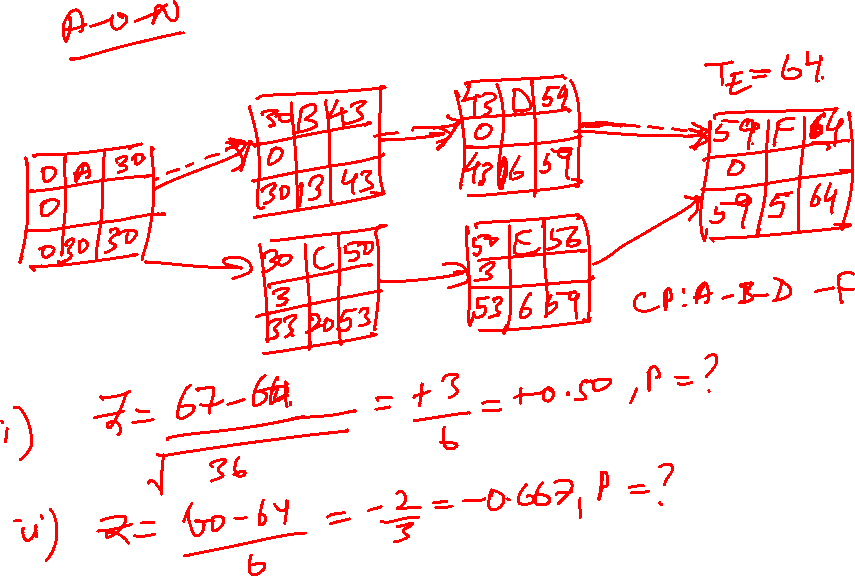 A-O-N
TE = 64
0 A 30
0
0 30 30
30 B 43
0
30 13 43
43 D 59
0
43 16 59
59 F 64
0
59 5 64
30 C 50
3
33 20 53
50 E 56
3
53 6 59
CP: A-B-D-F
i) Z = 67-64 / √36 = +3/6 = +0.50, P = ?
ii) Z = 60-64 / 6 = -2/3 = -0.667, P = ?